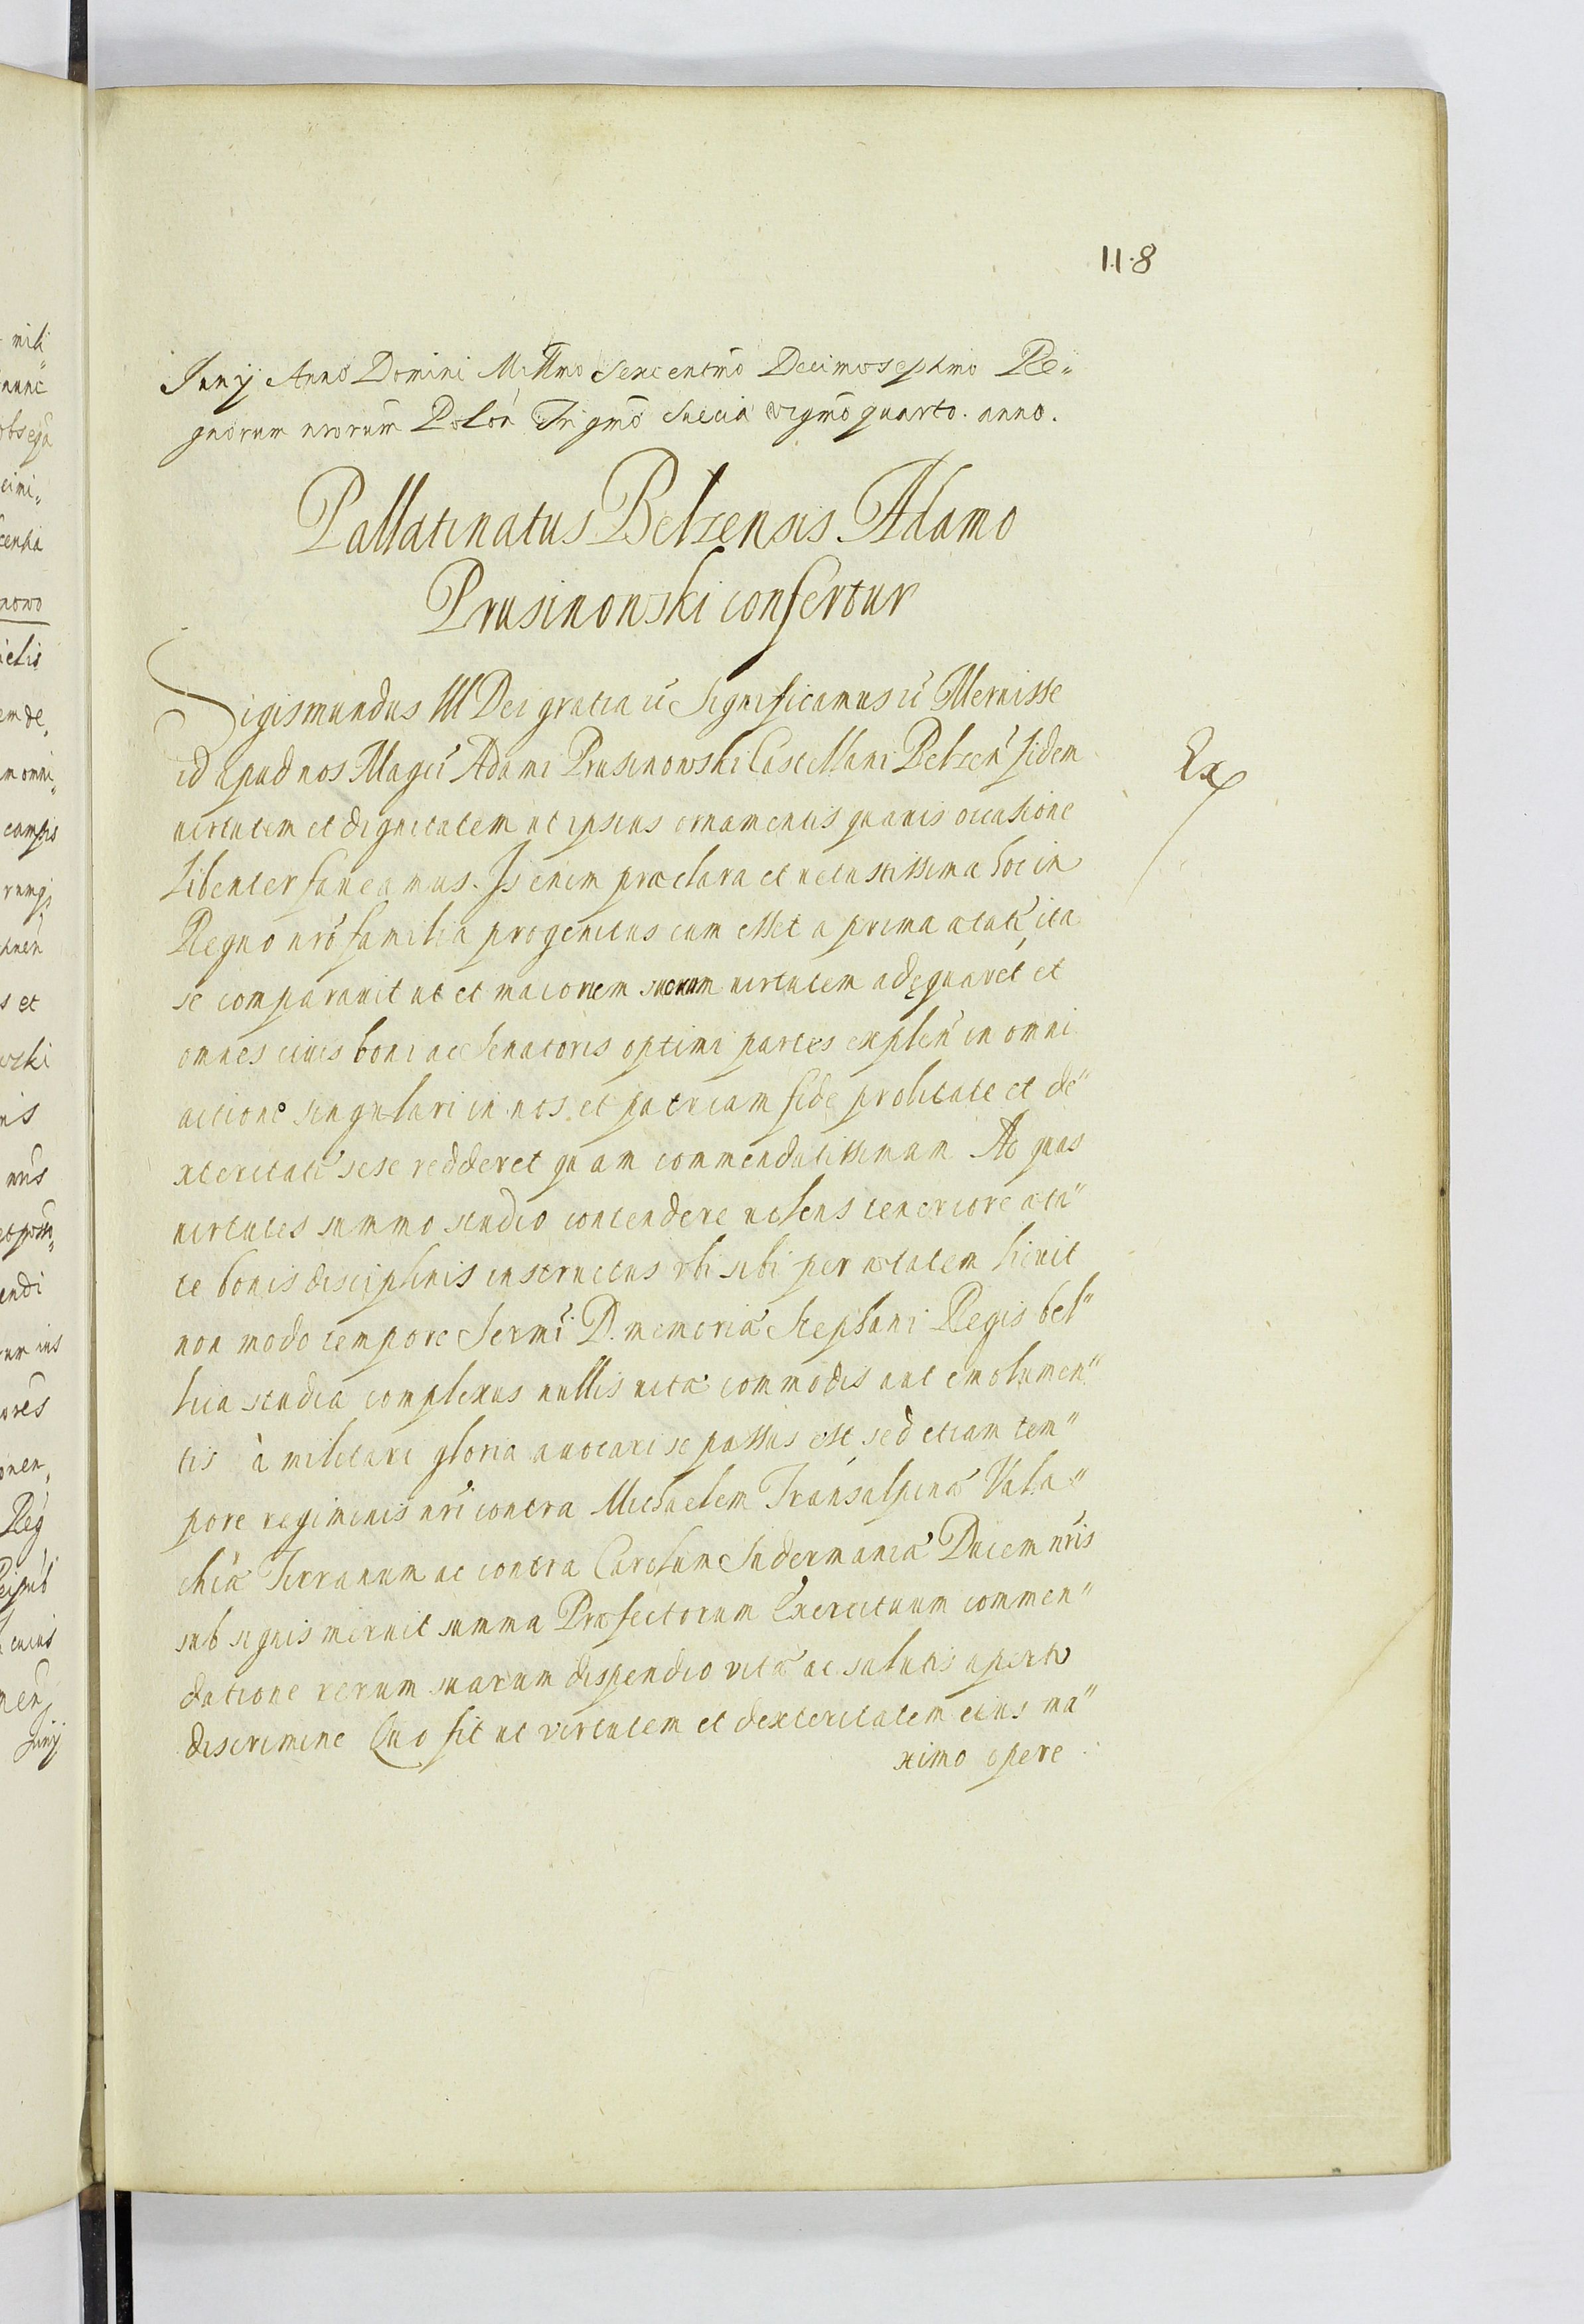 11.8
Junÿ Anno Domini Millmo Sexcentmo Decimoseptimo Re„
gnorum nrorum Polon Trigmo Sueciæ vigmo quarto anno.
Pallatinatus Belzensis Adamo
Prusinowski confertur
Sigismundus III Dei gratia &c Significamus &c Meruisse
id apud nos Magci Adami Prusinowski Castellani Belzen fidem
Ex
uirtutem et dignitatem ut ipsius ornamentis quauis occasione
libenter faueamus. Is enim præclara et uetustissima hoc in
Regno nro familia progenitus cum esset a prima ætate ita
se comparauit ut et maiorem suorum uirtutem adęquaret et
omnes ciuis boni ac Senatoris optimi partes explen in omni
actione singulari in nos et patriam fide probitate et de„
xteritate sese redderet quam commendatissimum Ad quas
uirtutes summo studio contendere uolens teneriore æta„
te bonis disciplinis instructus vbi sibi per ætatem licuit
non modo tempore Sermi D. memoriæ Stephani Regis bel„
lica studia complexus nullis uitæ commodis aut emolumen„
tis à militari gloria auocari se passus est sed etiam tem„
pore regiminis nri contra Michaelem Transalpinæ Vala„
chiæ Tirranum ac contra Carolum Sudermaniæ Ducem nris
sub signis meruit summa Præfectorum Exercituum commen„
datione rerum suarum dispendio vitæ ac salutis aperto
discrimine Quo fit ut virtutem et dexteritatem eius ma„
ximo opere